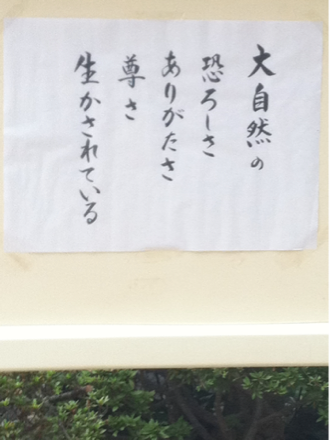 大自然の
恐ろしさ
ありがたさ
尊さ
生かされている